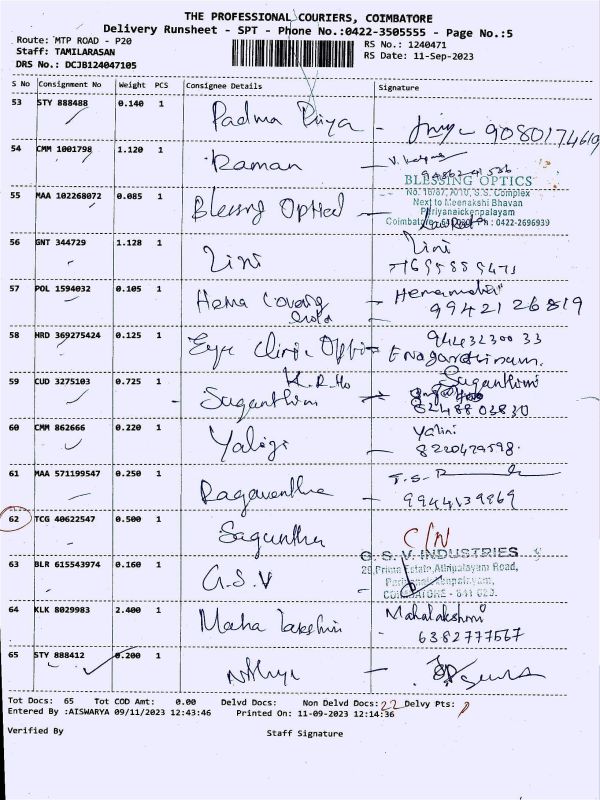 THE PROFESSIONAL COURIERS, COIMBATORE
Delivery Runsheet - SPT - Phone No.:0422-3505555 - Page No.:5
Route: MTP ROAD - P20
Staff: TAMILARASAN
DRS No.: DCJB124047105
RS No.: 1240471
RS Date: 11-Sep-2023
S No Consignment No Weight PCS Consignee Details Signature
53 STY 888488 0.140 1 Padma Priya - 9080174619
54 CMM 1001798 1.120 1 Raman -
55 MAA 102268072 0.085 1 Blessing Optical -
BLESSING OPTICS
S.S. Complex
Next to Meenakshi Bhavan
Periyanaickenpalayam
Ph : 0422-2696939
56 GNT 344729 1.128 1 Lini Lini
57 POL 1594032 0.105 1 Hema Covering - Hemamalini
Gold - 99421 26819
58 HRD 369275424 0.125 1 Eye Clinic - 9443230033
59 CUD 3275103 0.725 1 Suganthini Suganthini
6248803830
60 CMM 862666 0.220 1 Yalini - Yalini
8220429598
61 MAA 571199547 0.250 1 Ragaventhra - T.S.
9944139869
62 TCG 40622547 0.500 1 C/N
63 BLR 615543974 0.160 1 G.S.V
G. S. V. INDUSTRIES
29, Prima Estate, Athipalayam Road,
Periyanaickenpalayam,
COIMBATORE - 641 020.
64 KLK 8029983 2.400 1 Maha lakshmi - Mahalakshmi
6382777567
65 STY 888412 0.200 1 Nithya -
Tot Docs: 65 Tot COD Amt: 0.00 Delvd Docs: Non Delvd Docs: 22 Delvy Pts:
Entered By :AISWARYA 09/11/2023 12:43:46 Printed On: 11-09-2023 12:14:36
Verified By Staff Signature